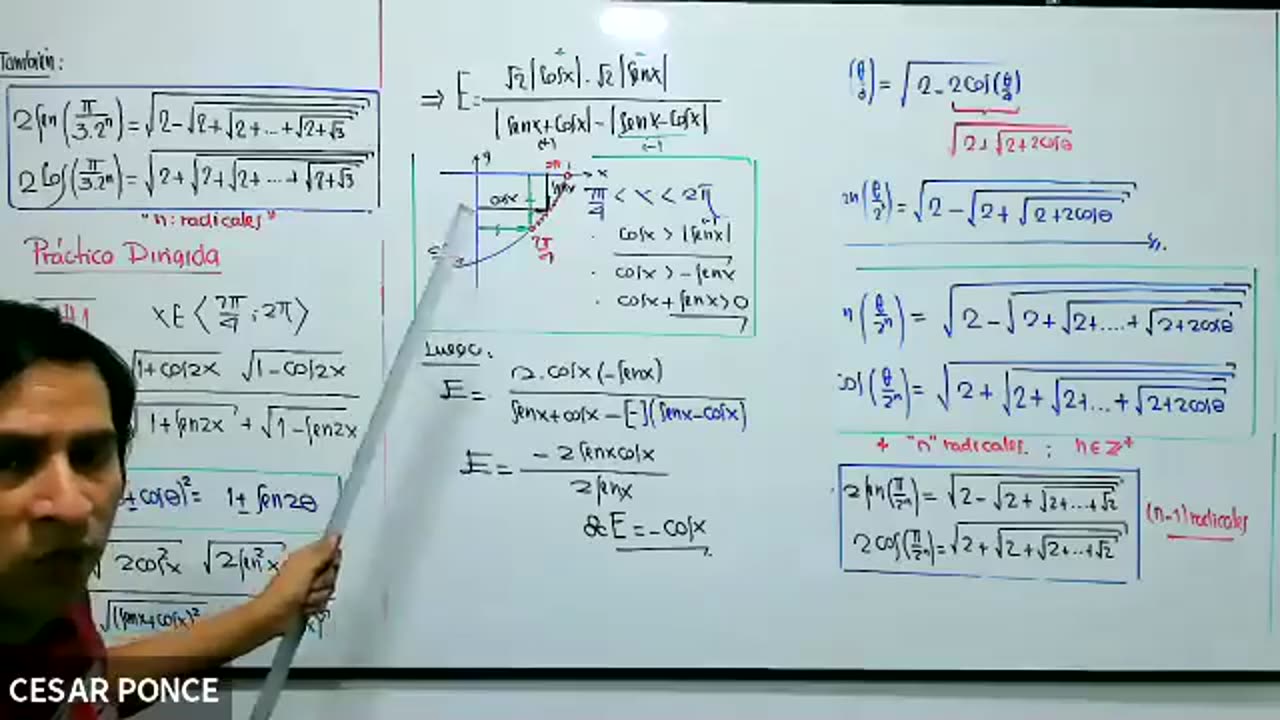 También:
2Sen(π/3.2ⁿ)=√2-√2+√2+...+√2+√3
2Cos(π/3.2ⁿ)=√2+√2+√2+...+√2+√3
"n: radicales"
Práctico Dirigida
#1 x∈⟨7π/4;2π⟩
√1+cos2x √1-cos2x
√1+sen2x + √1-sen2x
±cosθ)²= 1±sen2θ
√2cos²x √2sen²x
√(senx+cosx)²
⇒ E= √2|cosx|.√2|senx|
|senx+cosx|-|senx-cosx|
(+) (-)
y
2π x
cosx senx
7π/4
7π/4 < x < 2π
. cosx > |senx|
. cosx > -senx
. cosx+senx>0
Luego:
E= 2.cosx(-senx)
senx+cosx-[-](senx-cosx)
E= -2senxcosx
2senx
E=-cosx
=√2-2cos(
√2+√2+2cosθ
=√2-√2+√2+2cosθ
n(θ/2ⁿ)=√2-√2+√2+....+√2+2cosθ
cos(θ/2ⁿ)=√2+√2+√2+...+√2+2cosθ
+ "n" radicales. ; n∈ℤ⁺
2sen(π/2ⁿ)=√2-√2+√2+...+√2
(n-1) radicales
2cos(π/2ⁿ)=√2+√2+√2+...+√2
CESAR PONCE